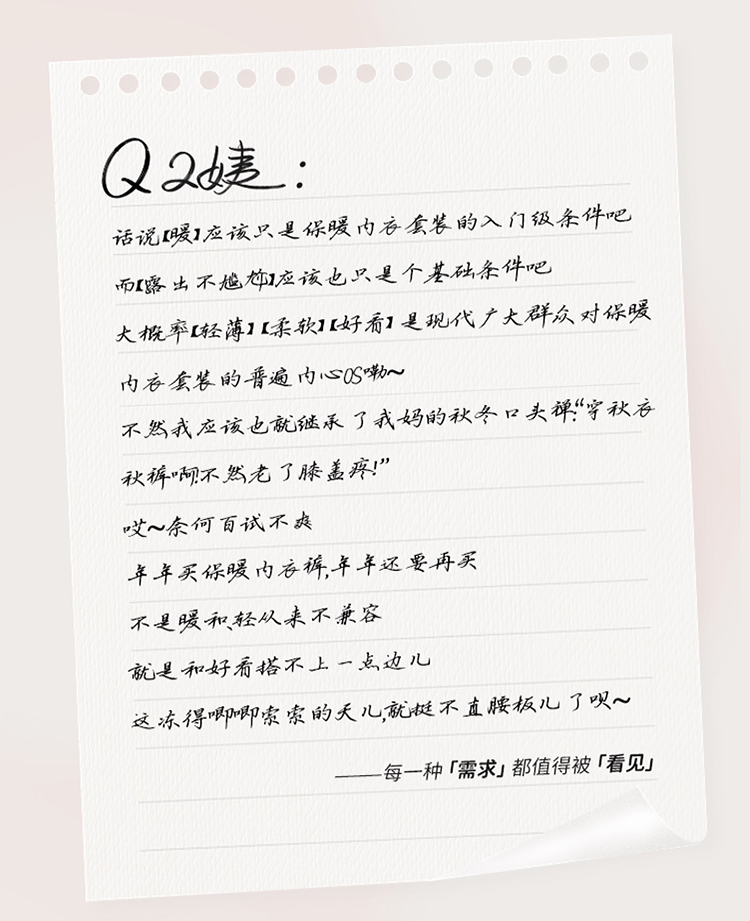 Q2姨：
话说【暖】应该只是保暖内衣套装的入门级条件吧
而【露出不尴尬】应该也只是个基础条件吧
大概率【轻薄】【柔软】【好看】是现代广大群众对保暖
内衣套装的普遍内心OS嘞~
不然我应该也就继承了我妈的秋冬口头禅:“穿秋衣
秋裤啊!不然老了膝盖疼!”
哎~奈何百试不爽
年年买保暖内衣裤,年年还要再买
不是暖和、轻从来不兼容
就是和好看搭不上一点边儿
这冻得唧唧索索的天儿,就挺不直腰板儿了呗~
——每一种「需求」都值得被「看见」